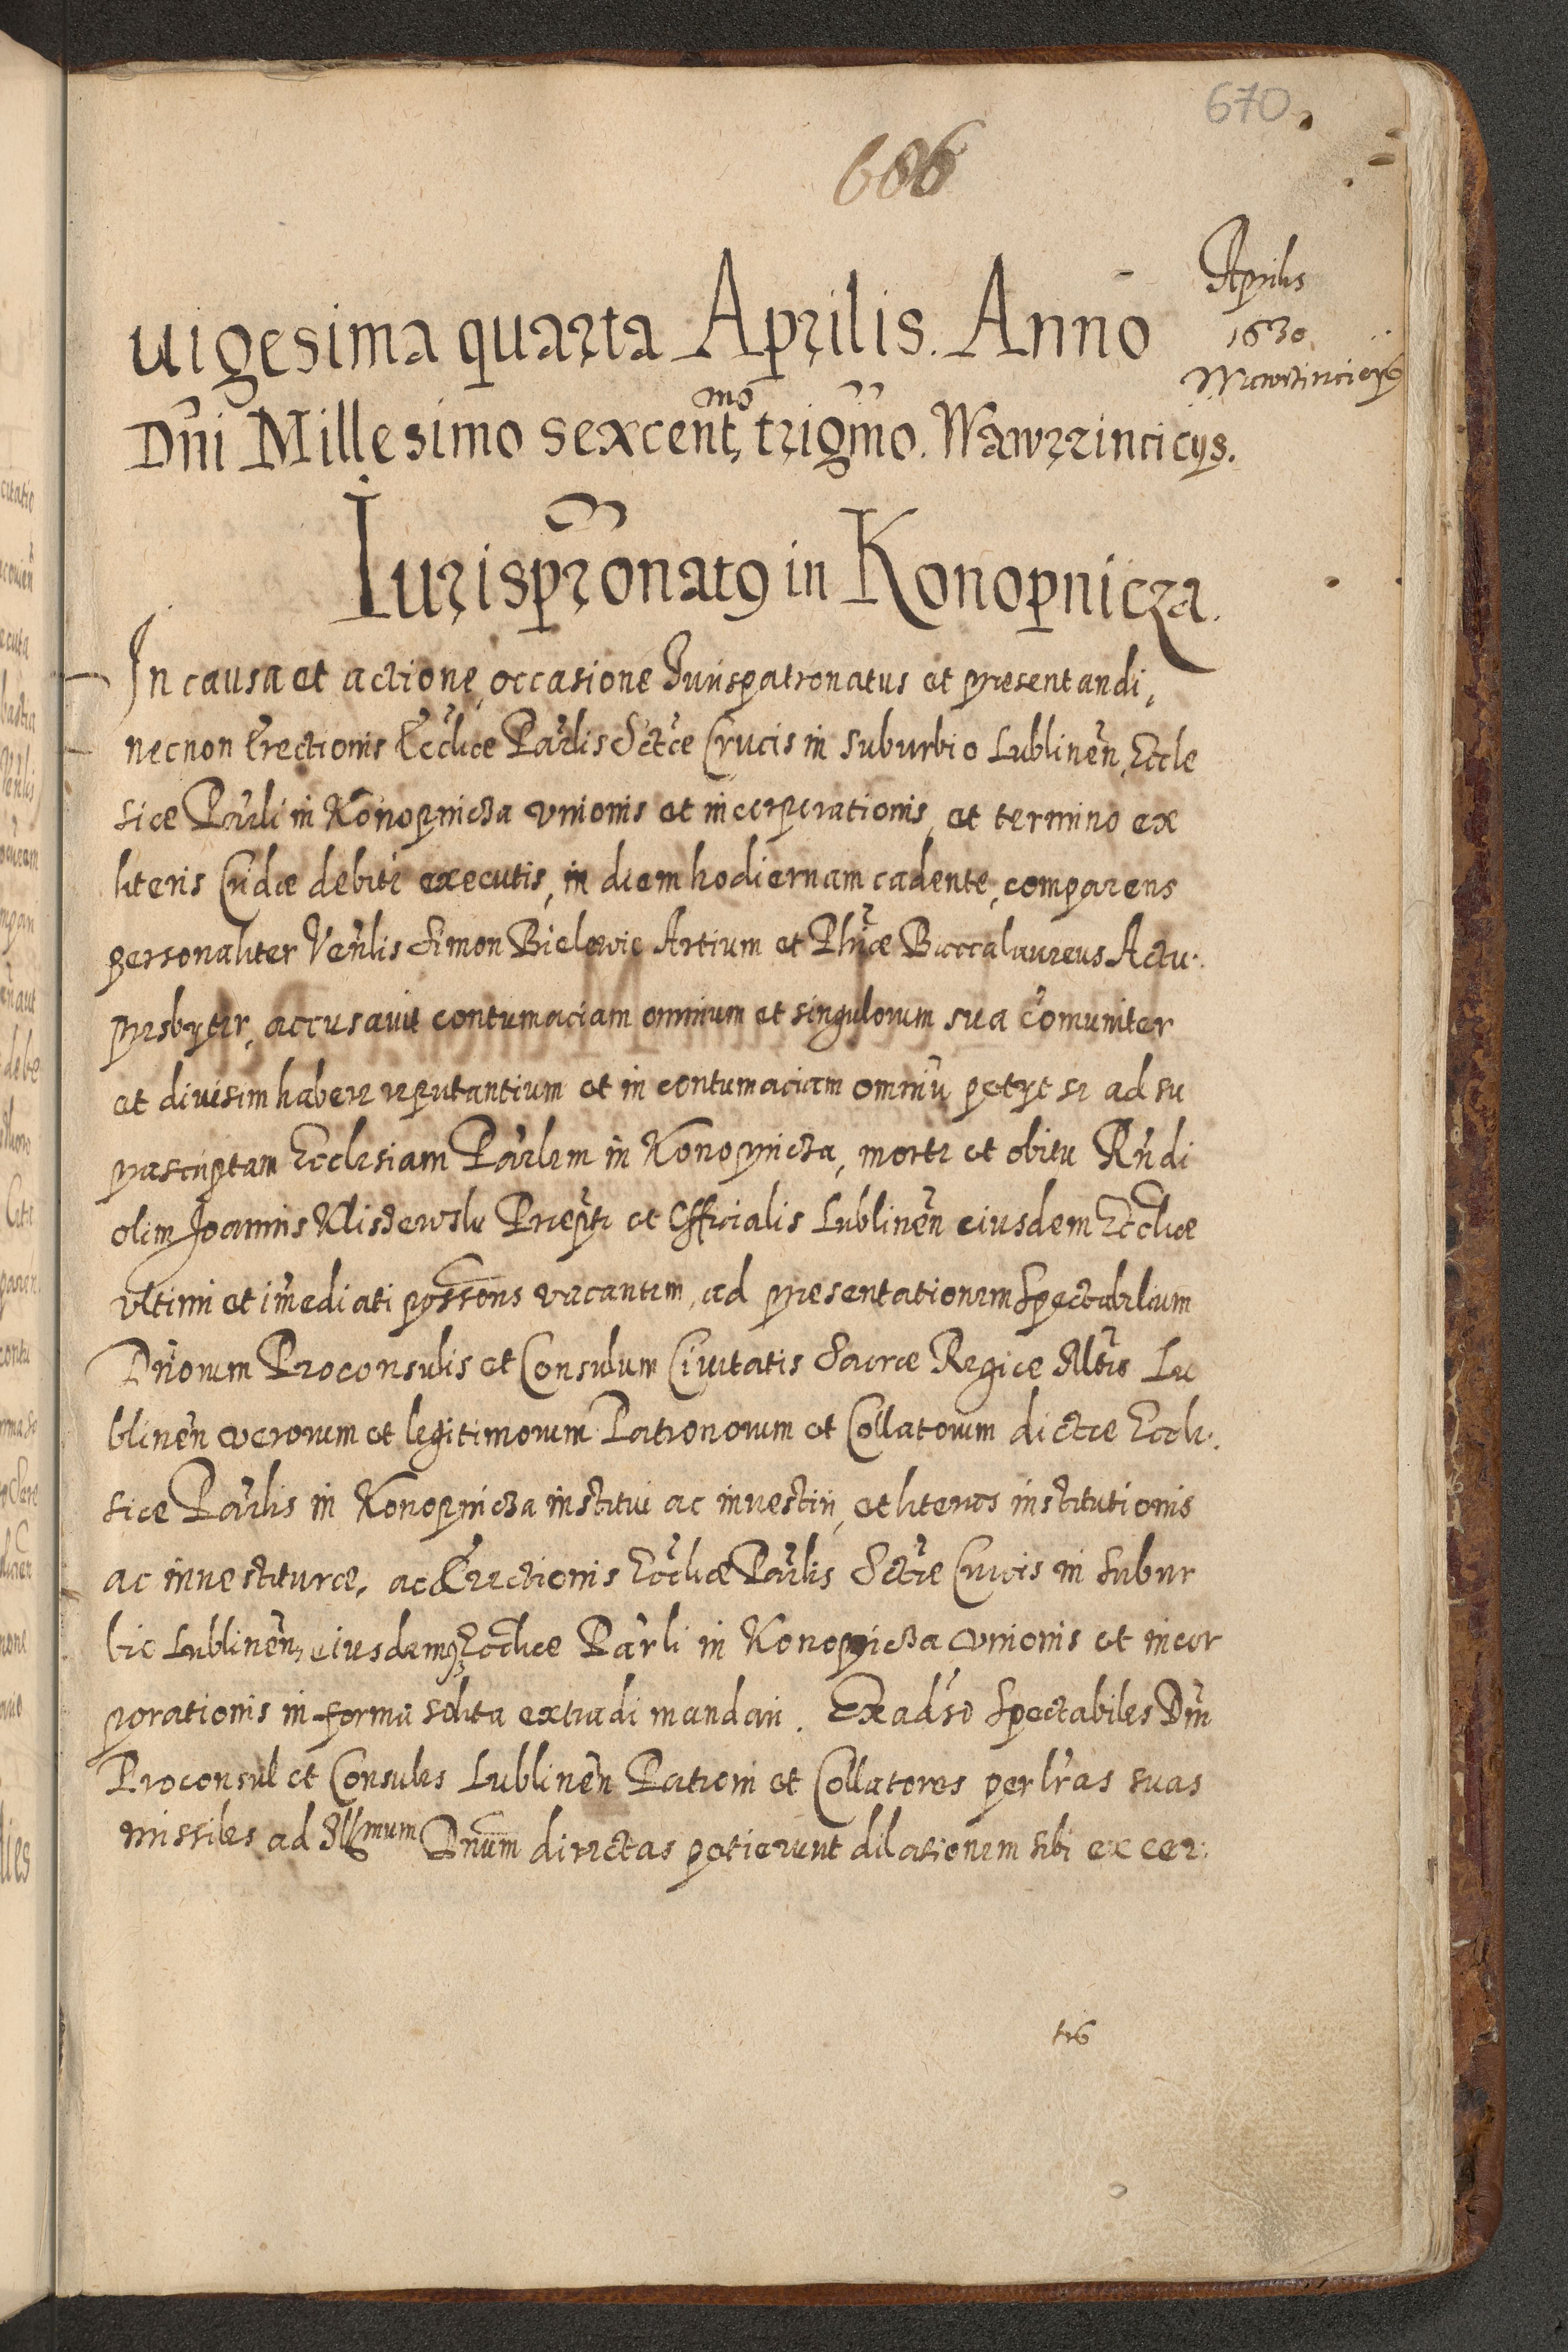 670
686
Aprilis
1630
uigesima quarta Aprilis. Anno
Dñi Millesimo sexcent mo trigmo. Wawrzincicijs.
Iurisprõnatq in Konopnicza.
In causa et actione, occasione Jurispatronatus et presentandi,
necnon Erectionis Ecclicæ Parlis Sctæ Crucis in suburbio Lublinen, Eccle
siæ Parli in Konopnicza vnionis et incorporationis, et termino ex
literis Cridæ debite executis, in diem hodiernam cadente, comparens
personaliter Venlis Simon Bielowic Artium et Phiæ Baccalaureus Actu.
presbyter, accusauit contumaciam omnium et singulorum sua comuniter
et diuisim habere reputantium et in contumaciam omniũ petijt se ad su
prascriptam Ecclesiam Parlem in Konopnicza, morte et obitu Rndi
olim Joannis Klisdewski Prepti et Officialis Lublinen eiusdem Eccliæ
vltimi et im̃ediati possens vacantem, ad presentationem Spectabilium
Dnorum Proconsulis et Consulum Ciuitatis Sacræ Regiæ Mttis Lu
blinen verorum et legitimorum Patronorum et Collatorum dictæ Eccle.
siæ Parlis in Konopnicza institui ac inuestiri, et literas institutionis
ac inuestituræ, ac Erectionis Eccliæ Parlis Sctæ Crucis in subur
bio Lublinen, eiusdemq Eccliæ Parli in Konopnicza vnionis et incor
porationis in forma solita extradi mandari. Ex aduso Spectabiles Dni
Proconsul et Consules Lublinen Patroni et Collatores per lras suas
missiles ad Illmum Dnum directas petierunt dilationem sibi ex cer.
tis